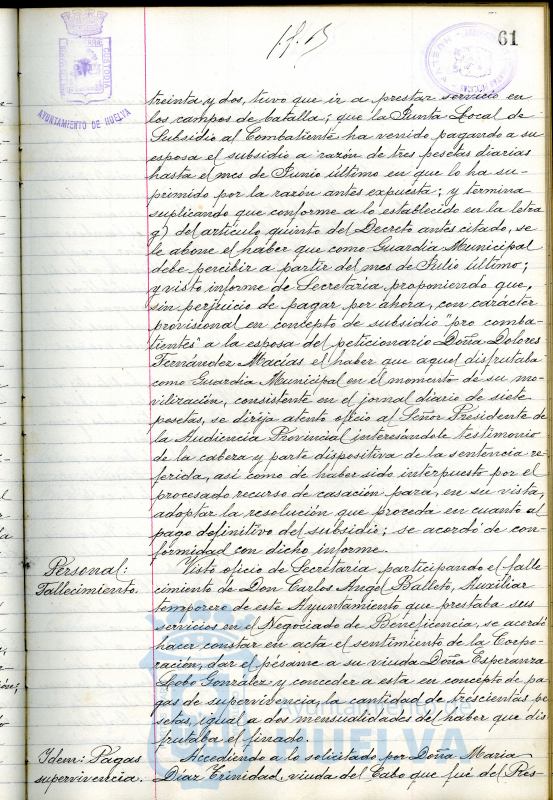 61
AYUNTAMIENTO DE HUELVA
treinta y dos, tuvo que ir a prestar servicio en
los campos de batalla; que la Junta Local de
Subsidio al Combatiente ha venido pagando a su
esposa el subsidio a razón de tres pesetas diarias
hasta el mes de Junio último en que lo ha su-
primido por la razón antes expuesta; y termina
suplicando que conforme a lo establecido en la letra
g) del artículo quinto del Decreto antes citado, se
le abone el haber que como Guardia Municipal
debe percibir a partir del mes de Julio último;
y visto informe de Secretaría proponiendo que,
sin perjuicio de pagar por ahora, con carácter
provisional en concepto de subsidio "pro comba-
tientes" a la esposa del peticionario Doña Dolores
Fernández Macías el haber que aquel disfrutaba
como Guardia Municipal en el momento de su mo-
vilización, consistente en el jornal diario de siete
pesetas, se dirija atento oficio al Señor Presidente de
la Audiencia Provincial interesándole testimonio
de la cabeza y parte dispositiva de la sentencia re-
ferida, así como de haber sido interpuesto por el
procesado recurso de casación para, en su vista,
adoptar la resolución que proceda en cuanto al
pago definitivo del subsidio; se acordó de con-
formidad con dicho informe.
Personal:
Fallecimiento.
Visto oficio de Secretaría participando el falle-
cimiento de Don Carlos Angel Balleto, Auxiliar
temporero de este Ayuntamiento que prestaba sus
servicios en el Negociado de Beneficencia, se acordó
hacer constar en acta el sentimiento de la Corpo-
ración, dar el pésame a su viuda Doña Esperanza
Lobo González y conceder a esta en concepto de pa-
gas de supervivencia, la cantidad de trescientas pe-
setas, igual a dos mensualidades del haber que dis-
frutaba el finado.
Idem: Pagas
supervivencia.
Accediendo a lo solicitado por Doña María
Díaz Trinidad, viuda del Cabo que fué del Res-
Ayuntamiento de
HUELVA